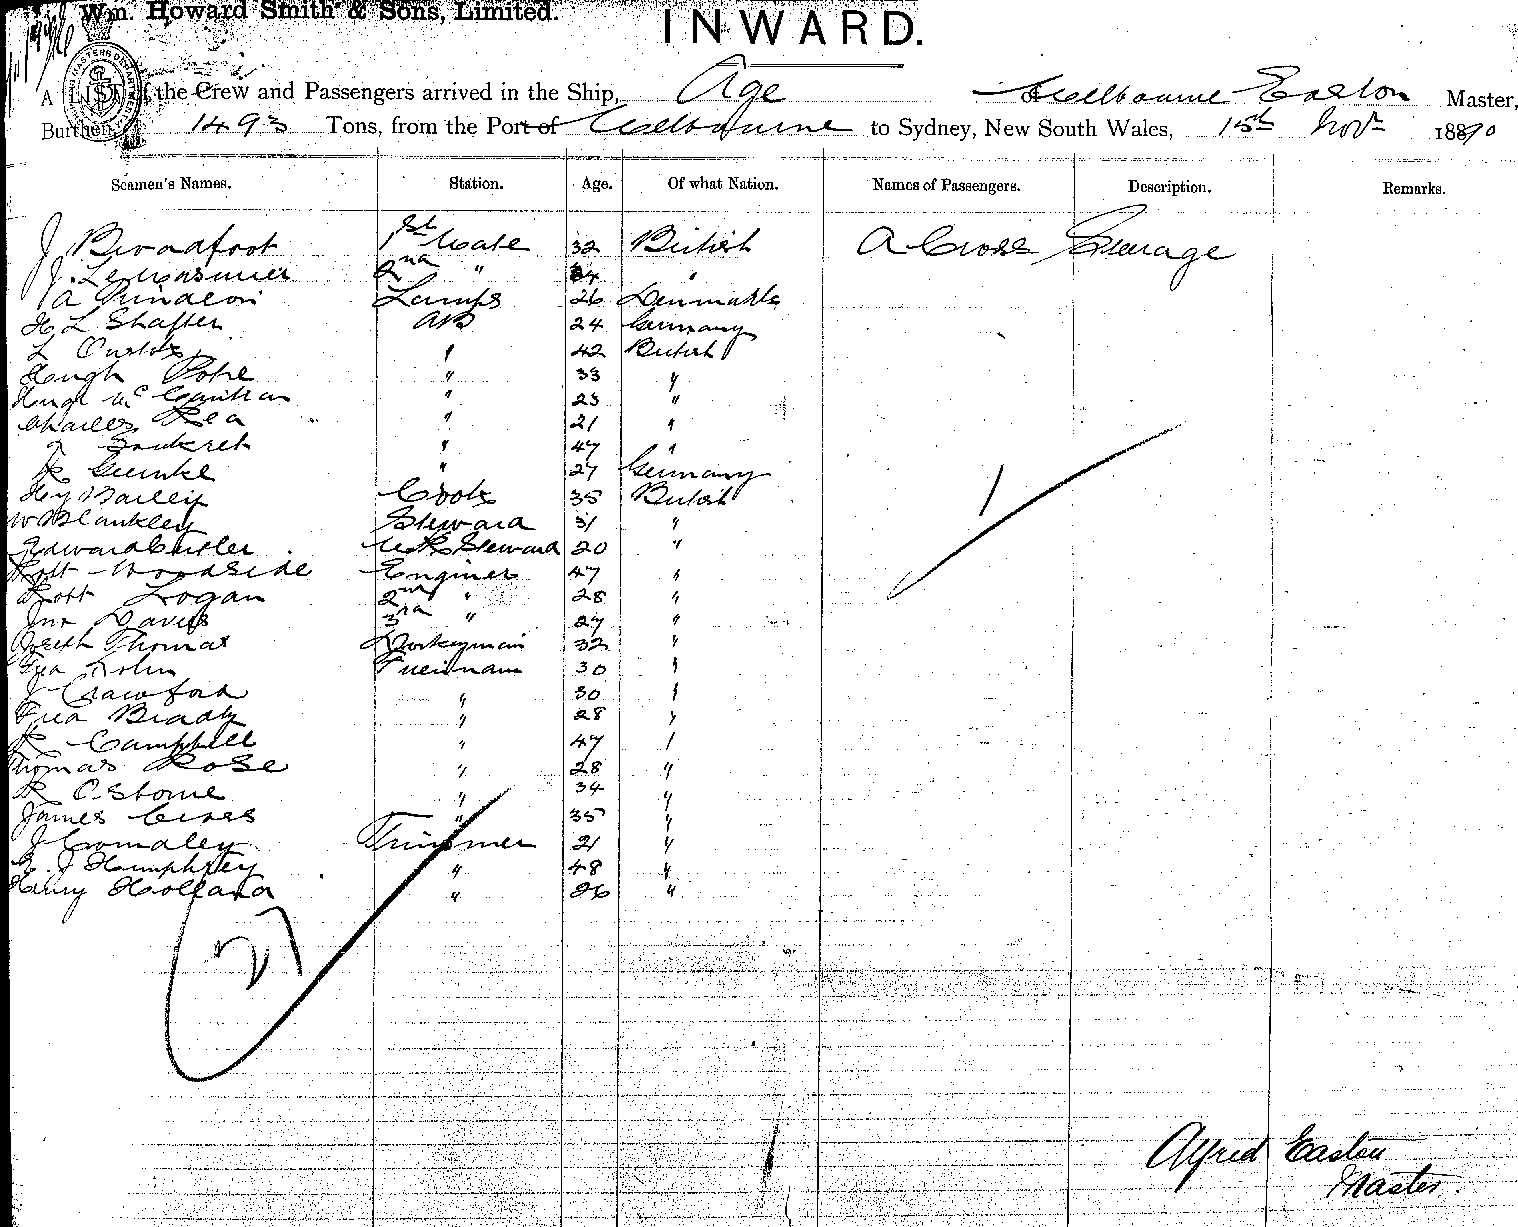 Wm. Howard Smith & Sons, Limited.
INWARD.
A LIST of the Crew and Passengers arrived in the Ship, Age of Melbourne Easton Master,
Burthen, 1493 Tons, from the Port of Melbourne to Sydney, New South Wales, 15th Novr 1890
Seamen's Names. Station. Age. Of what Nation. Names of Passengers. Description. Remarks.
J. Broadfoot 1st Mate 32 British A Cross Steerage
J. 2nd " 34 "
A Lamps 26 Denmark
H L Shafter AB 24 Germany
L " 42 British
Hugh Pope " 33 "
Hugh Mc " 23 "
Charles Rea " 21 "
" 47 "
R " 27 Germany
Hy Bailey Cook 35 British
W Blankley Steward 31 "
Edward Cutler Steward 20 "
Robt Woodside Enginer 47 "
Robt Logan 2nd " 28 "
Jno Davis 3rd " 27 "
Joseph Thomas Donkeyman 32 "
Fireman 30 "
J Crawford " 30 "
Fred Brady " 28 "
R Campbell " 47 "
Thomas Rose " 28 "
R Osborne " 34 "
James " 35 "
J Comaley Trimmer 21 "
G. J Humphrey " 48 "
Harry Holland " 26 "
1
27
Alfred Easton
Master.